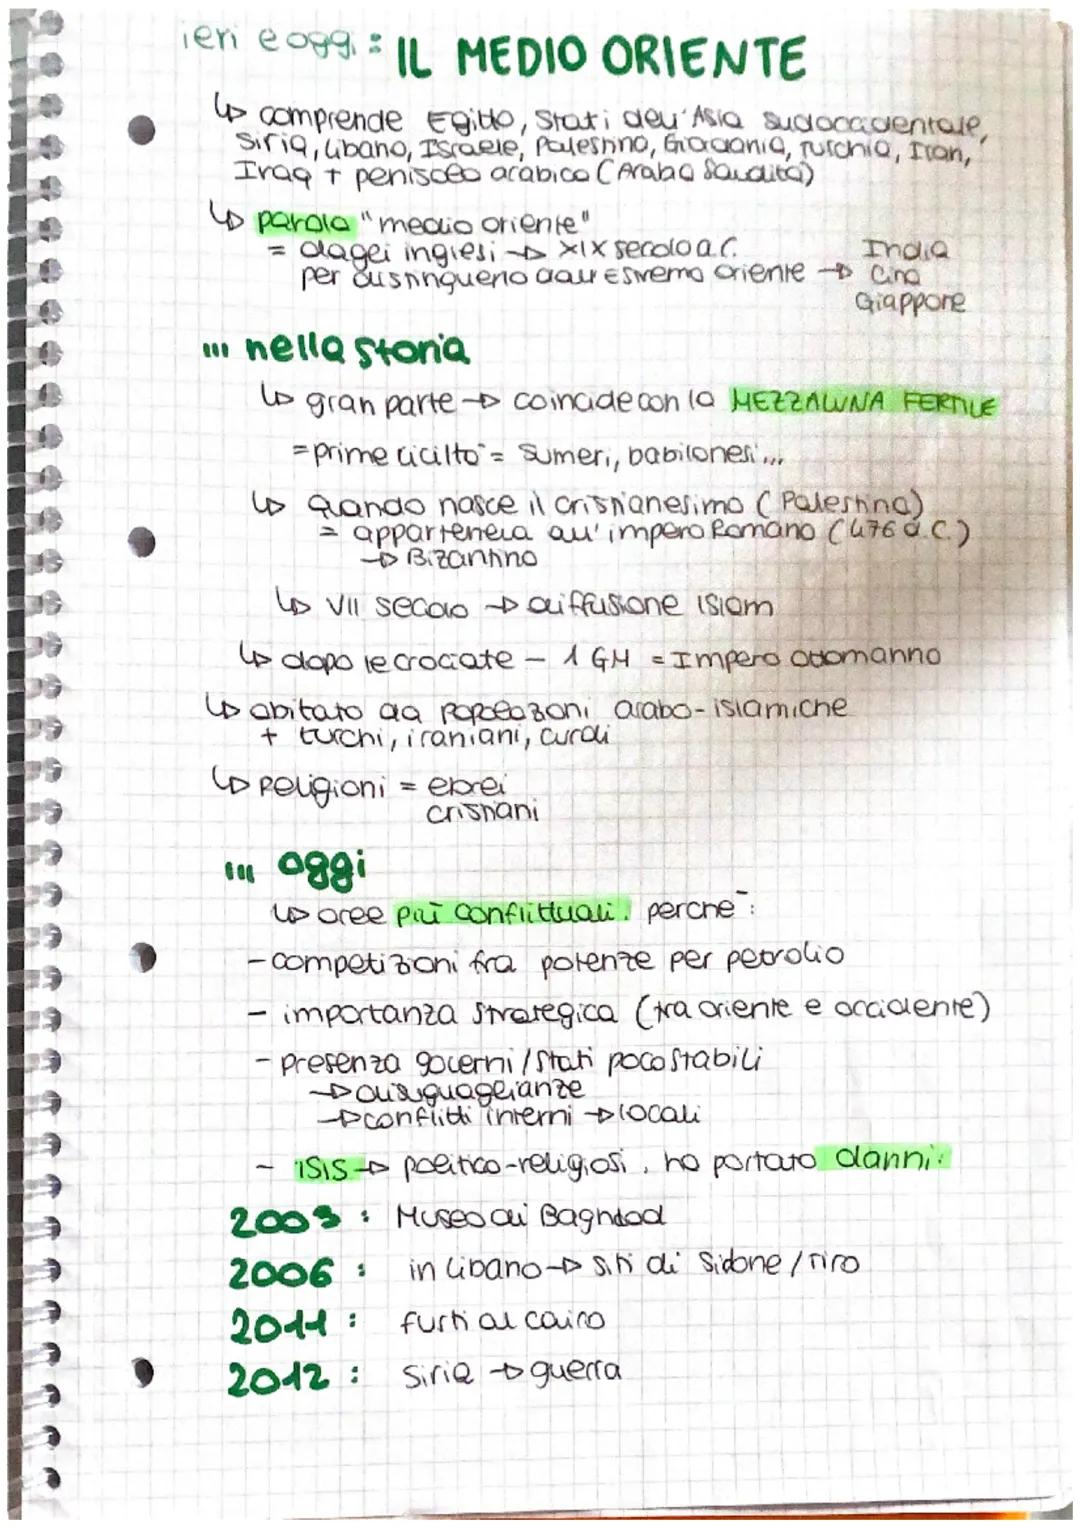 ieri e oggi: IL MEDIO ORIENTE
↳ comprende Egitto, Stati dell'Asia sudoccidentale,
Siria, Libano, Israele, Palestina, Giordania, Turchia, Iran,
Iraq + penisola arabica (Araba Saudita)
↳ parola "medio oriente"
= dagli inglesi → XIX secolo a.C.
per distinguerlo dall'Estremo oriente → India
Cina
Giappone
... nella storia
↳ gran parte → coincide con la MEZZALUNA FERTILE
= prime civiltà = Sumeri, babilonesi...
↳ Quando nasce il cristianesimo (Palestina)
= apparteneva all'impero Romano (476 d.C.)
→ Bizantino
↳ VII secolo → diffusione islam
↳ dopo le crociate - 1 GM = Impero ottomanno
↳ abitato da popolazioni arabo-islamiche
+ turchi, iraniani, curdi
↳ Religioni = ebrei
cristiani
... oggi
↳ aree più conflittuali. perché:
- competizioni fra potenze per petrolio
- importanza strategica (tra oriente e occidente)
- presenza governi/Stati poco stabili
→ disuguaglianze
→ conflitti interni → locali
- ISIS → politico-religiosi, ha portato danni:
2003: Museo di Baghdad
2006: in Libano → siti di Sidone/Tiro
2011: furti al cairo
2012: Siria → guerra